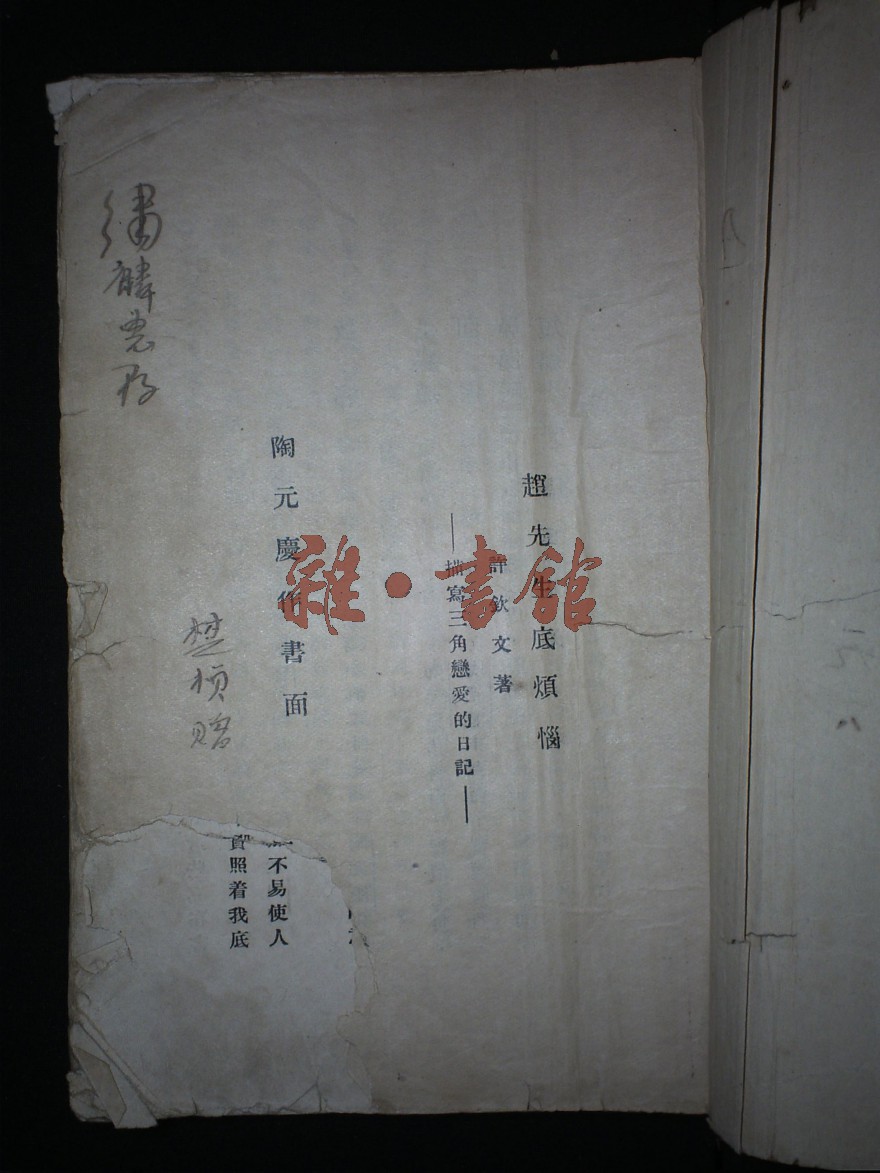 趙先生底煩惱
許欽文著
——描寫三角戀愛的日記——
陶元慶作書面
繡麟惠存
樊楨贈
不易使人
實照着我底
雜·書館